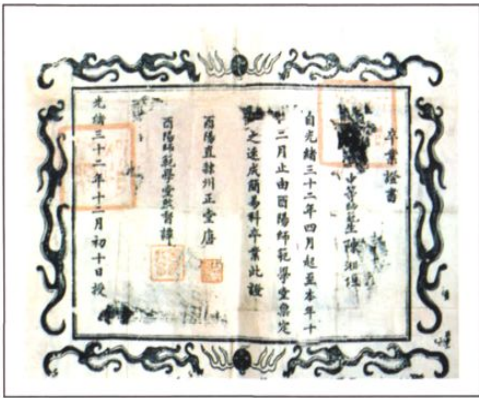 卒業證書
中等師範生陳湘垣
自光緒三十二年四月起至本年十
二月止由酉陽師範學堂禀定
之速成簡易科卒業此證
酉陽直隸州正堂唐
酉陽師範學堂監督譚
光緒三十二年十二月初十日授